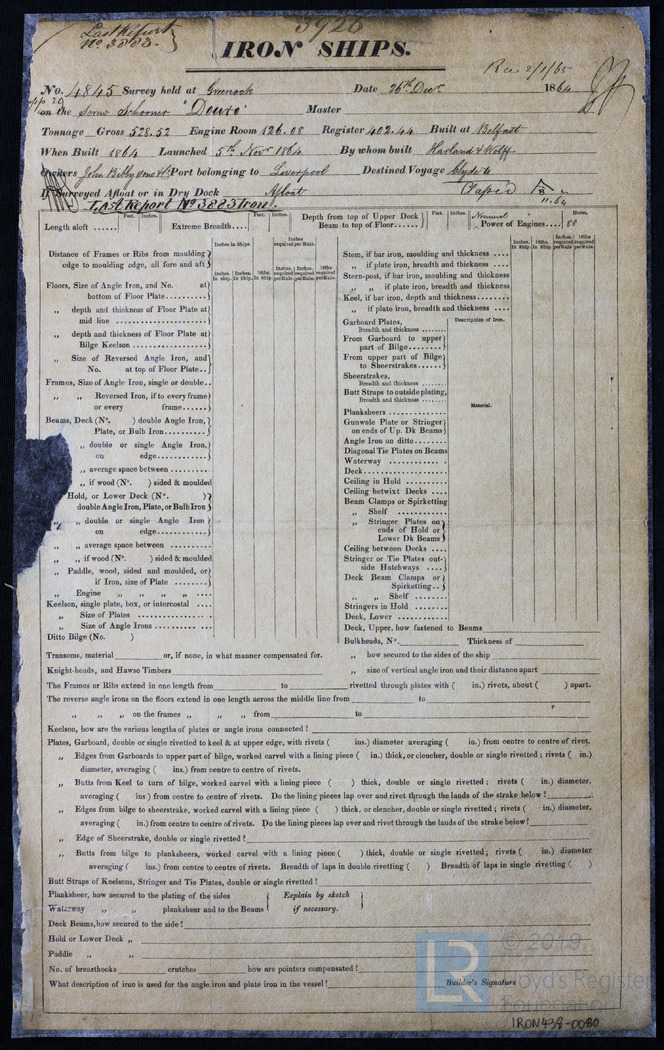 3926
Last Report
No. 3883.
IRON SHIPS.
Rec 2/1/65
No. 4845 Survey held at Greenock Date 26th Decr 1864
on the Screw Schooner "Douro" Master
Tonnage Gross 528.52 Engine Room 126.08 Register 402.44 Built at Belfast
When Built 1864 Launched 5th Novr 1864 By whom built Harland & Wolff
Owners John Bibby Sons & Co Port belonging to Liverpool Destined Voyage Clyde to
If Surveyed Afloat or in Dry Dock Afloat Classed
11.64
Last Report No 3883 Iron.
Length aloft ...... Feet. Inches. Extreme Breadth.... Feet. Inches. Depth from top of Upper Deck Beam to top of Floor...... Feet. Inches. Nominal Power of Engines.... Horse. 80
Inches in Ships. Inches required per Rule.
Distance of Frames or Ribs from moulding
edge to moulding edge, all fore and aft
Inches. In Ship. 16ths In Ship. Inches. required per Rule. 16ths required per Rule.
Floors, Size of Angle Iron, and No. at
bottom of Floor Plate..........
„ depth and thickness of Floor Plate at
mid line ......................
„ depth and thickness of Floor Plate at
Bilge Keelson ..................
„ Size of Reversed Angle Iron, and
No. at top of Floor Plate..
Frames, Size of Angle Iron, single or double..
„ „ Reversed Iron, if to every frame
or every frame......
Beams, Deck (No. ) double Angle Iron,
Plate, or Bulb Iron..........
„ double or single Angle Iron,
on edge..............
„ average space between ..........
„ if wood (No. ) sided & moulded
Hold, or Lower Deck (No. )
double Angle Iron, Plate, or Bulb Iron
„ double or single Angle Iron
on edge..............
„ average space between ..........
„ „ if wood (No. ) sided & moulded
„ Paddle, wood, sided and moulded, or
if Iron, size of Plate ........
„ Engine „ „ „ „
Keelson, single plate, box, or intercostal ....
„ Size of Plates ................
„ Size of Angle Irons ..........
Ditto Bilge (No. )
Inches. In Ship. 16ths In Ship. Inches. required per Rule. 16ths required per Rule.
Stem, if bar iron, moulding and thickness ....
„ if plate iron, breadth and thickness ....
Stern-post, if bar iron, moulding and thickness
„ „ if plate iron, breadth and thickness
Keel, if bar iron, depth and thickness........
„ if plate iron, breadth and thickness ....
Garboard Plates,
Breadth and thickness ........
Description of Iron.
From Garboard to upper
part of Bilge..........
From upper part of Bilge
to Sheerstrakes........
Sheerstrakes,
Breadth and thickness ........
Butt Straps to outside plating,
Breadth and thickness ........
Material.
Planksheers ................
Gunwale Plate or Stringer
on ends of Up. Dk Beams
Angle Iron on ditto..........
Diagonal Tie Plates on Beams
Waterway ................
Deck......................
Ceiling in Hold ............
Ceiling betwixt Decks ....
Beam Clamps or Spirketting
„ Shelf ..............
„ Stringer Plates on
ends of Hold or
Lower Dk Beams
Ceiling between Decks ....
Stringer or Tie Plates out-
side Hatchways ........
Deck Beam Clamps or
Spirketting..
„ „ Shelf ........
Stringers in Hold ..........
Deck, Lower ..............
Deck, Upper, how fastened to Beams
Bulkheads, No. Thickness of
„ how secured to the sides of the ship
„ size of vertical angle iron and their distance apart
Transoms, material or, if none, in what manner compensated for.
Knight-heads, and Hawse Timbers
The Frames or Ribs extend in one length from to rivetted through plates with ( in.) rivets, about ( ) apart.
The reverse angle irons on the floors extend in one length across the middle line from to
„ „ „ on the frames „ „ from to
Keelson, how are the various lengths of plates or angle irons connected?
Plates, Garboard, double or single rivetted to keel & at upper edge, with rivets ( ins.) diameter averaging ( in.) from centre to centre of rivet.
„ Edges from Garboards to upper part of bilge, worked carvel with a lining piece ( in.) thick, or clencher, double or single rivetted; rivets ( in.)
diameter, averaging ( ins.) from centre to centre of rivets.
„ Butts from Keel to turn of bilge, worked carvel with a lining piece ( ) thick, double or single rivetted; rivets ( in.) diameter.
averaging ( ins.) from centre to centre of rivets. Do the lining pieces lap over and rivet through the lands of the strake below?
„ Edges from bilge to sheerstrake, worked carvel with a lining piece ( ) thick, or clencher, double or single rivetted; rivets ( in.) diameter.
averaging ( in.) from centre to centre of rivets. Do the lining pieces lap over and rivet through the lands of the strake below?
„ Edge of Sheerstrake, double or single rivetted?
„ Butts from bilge to planksheers, worked carvel with a lining piece ( ) thick, double or single rivetted; rivets ( in.) diameter
averaging ( ins.) from centre to centre of rivets. Breadth of laps in double rivetting ( ) Breadth of laps in single rivetting ( )
Butt Straps of Keelsons, Stringer and Tie Plates, double or single rivetted?
Planksheer, how secured to the plating of the sides Explain by sketch
Waterway „ „ planksheer and to the Beams if necessary.
Deck Beams, how secured to the side?
Hold or Lower Deck „
Paddle „ „
No. of breasthooks crutches how are pointers compensated?
What description of iron is used for the angle iron and plate iron in the vessel?
Builder's Signature
LR © 2019
Lloyd's Register
Foundation
IRON439-0080